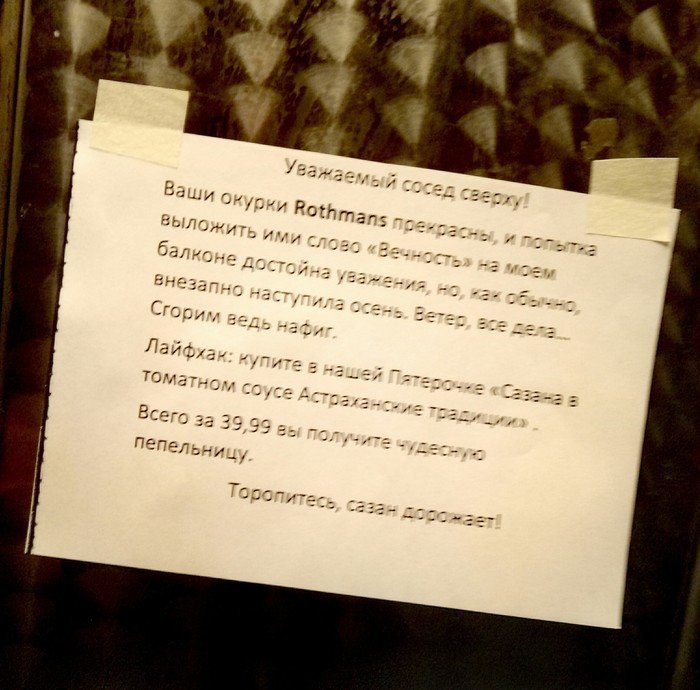 Уважаемый сосед сверху!
Ваши окурки Rothmans прекрасны, и попытка
выложить ими слово «Вечность» на моем
балконе достойна уважения, но, как обычно,
внезапно наступила осень. Ветер, все дела...
Сгорим ведь нафиг.
Лайфхак: купите в нашей Пятерочке «Сазана в
томатном соусе Астраханские традиции» .
Всего за 39,99 вы получите чудесную
пепельницу.
Торопитесь, сазан дорожает!